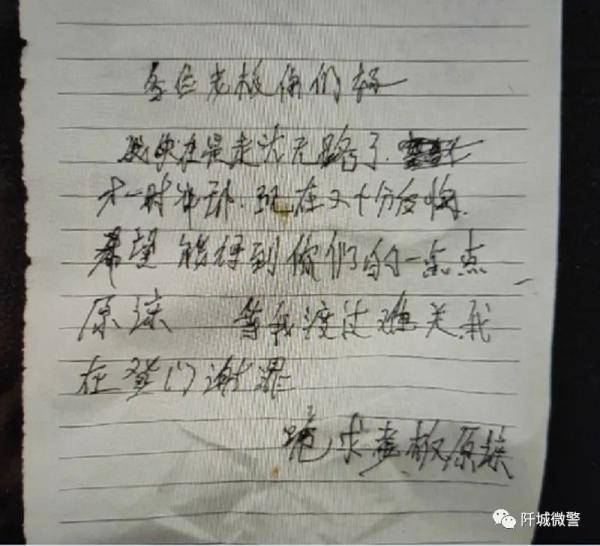 各位老板你们好
我实在是走投无路了.
才一时冲动.现在又十分后悔.
希望能得到你们的一点点
原谅 等我渡过难关我
在登门谢罪
跪求老板原谅
阡城微警